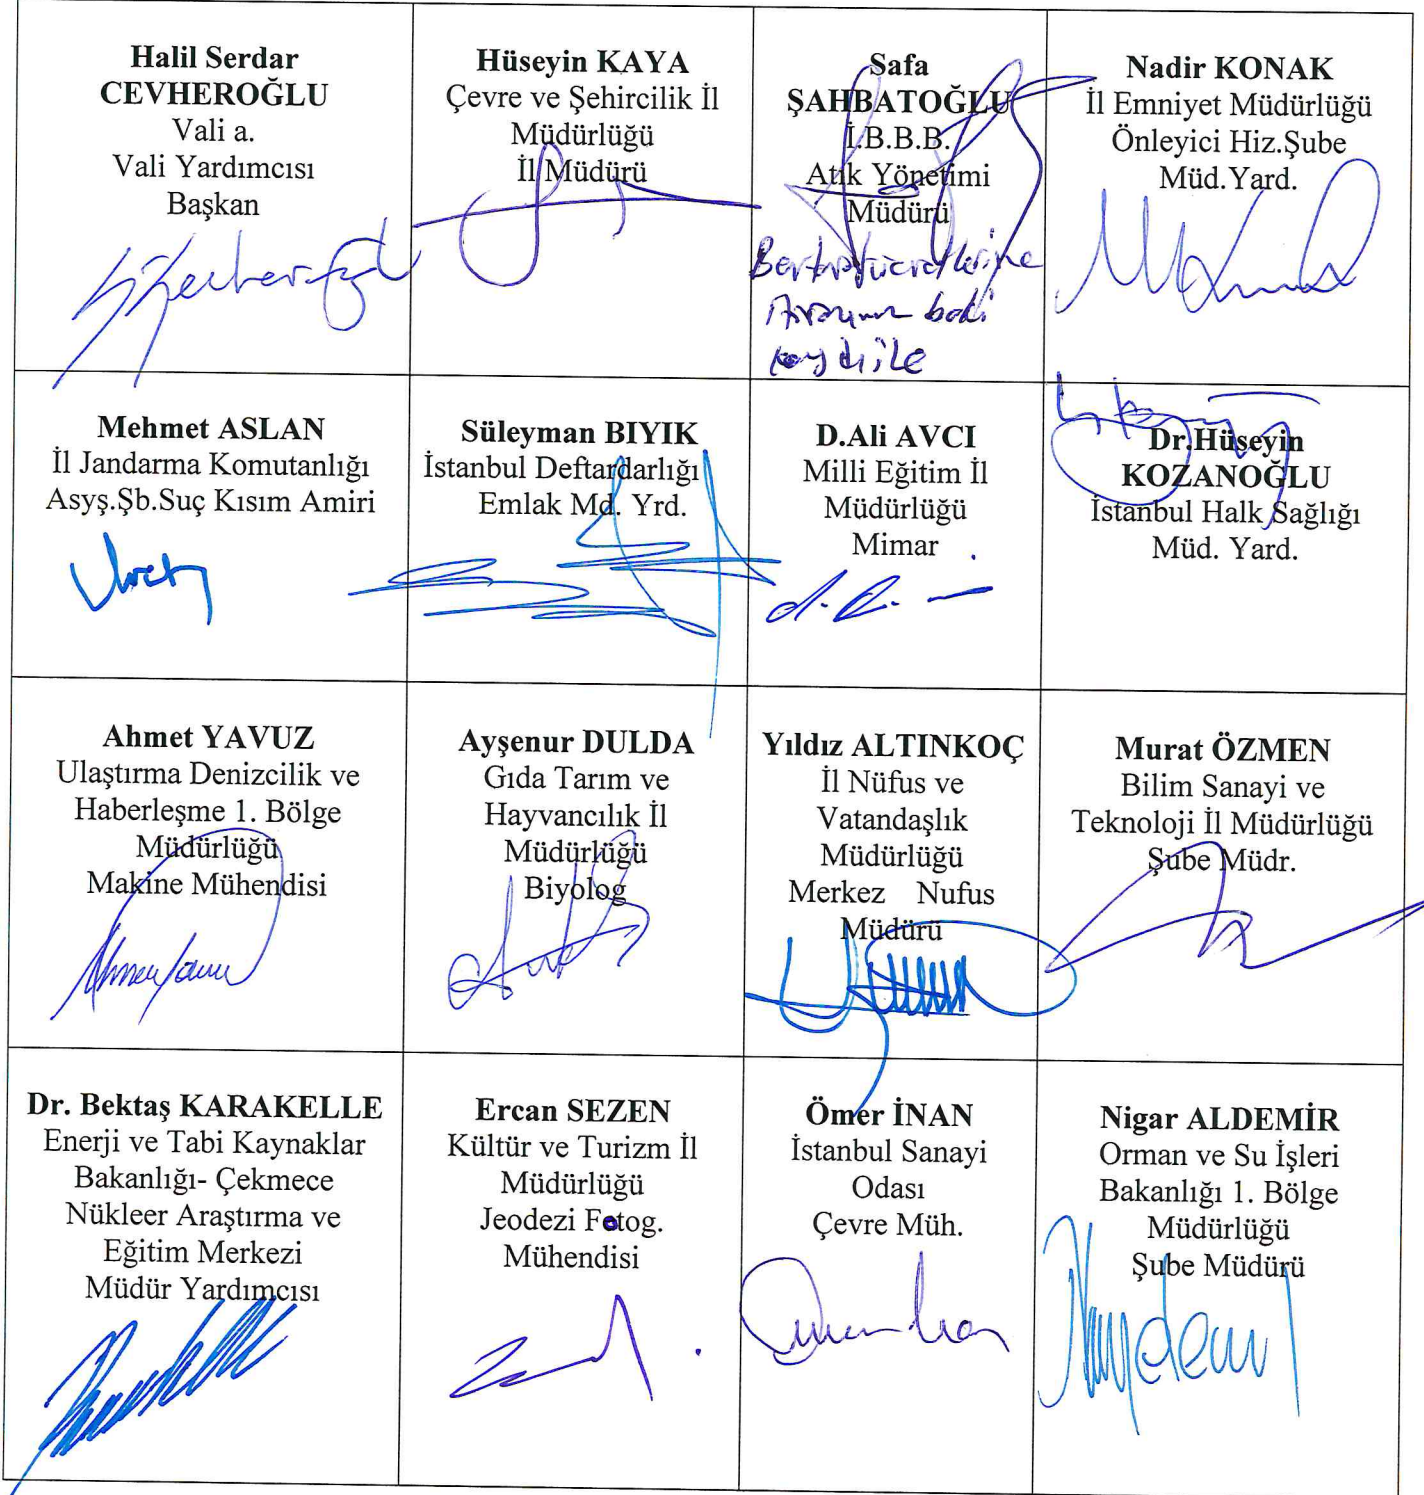 Halil Serdar
CEVHEROĞLU
Vali a.
Vali Yardımcısı
Başkan
Hüseyin KAYA
Çevre ve Şehircilik İl
Müdürlüğü
İl Müdürü
Safa
ŞAHBATOĞLU
İ.B.B.B.
Atık Yönetimi
Müdürü
baki
kaydı ile
Nadir KONAK
İl Emniyet Müdürlüğü
Önleyici Hiz.Şube
Müd.Yard.
Mehmet ASLAN
İl Jandarma Komutanlığı
Asyş.Şb.Suç Kısım Amiri
Süleyman BIYIK
İstanbul Deftardarlığı
Emlak Md. Yrd.
D.Ali AVCI
Milli Eğitim İl
Müdürlüğü
Mimar
Dr.Hüseyin
KOZANOĞLU
İstanbul Halk Sağlığı
Müd. Yard.
Ahmet YAVUZ
Ulaştırma Denizcilik ve
Haberleşme 1. Bölge
Müdürlüğü
Makine Mühendisi
Ayşenur DULDA
Gıda Tarım ve
Hayvancılık İl
Müdürlüğü
Biyolog
Yıldız ALTINKOÇ
İl Nüfus ve
Vatandaşlık
Müdürlüğü
Merkez Nufus
Müdürü
Murat ÖZMEN
Bilim Sanayi ve
Teknoloji İl Müdürlüğü
Şube Müdr.
Dr. Bektaş KARAKELLE
Enerji ve Tabi Kaynaklar
Bakanlığı- Çekmece
Nükleer Araştırma ve
Eğitim Merkezi
Müdür Yardımcısı
Ercan SEZEN
Kültür ve Turizm İl
Müdürlüğü
Jeodezi Fotog.
Mühendisi
Ömer İNAN
İstanbul Sanayi
Odası
Çevre Müh.
Nigar ALDEMİR
Orman ve Su İşleri
Bakanlığı 1. Bölge
Müdürlüğü
Şube Müdürü